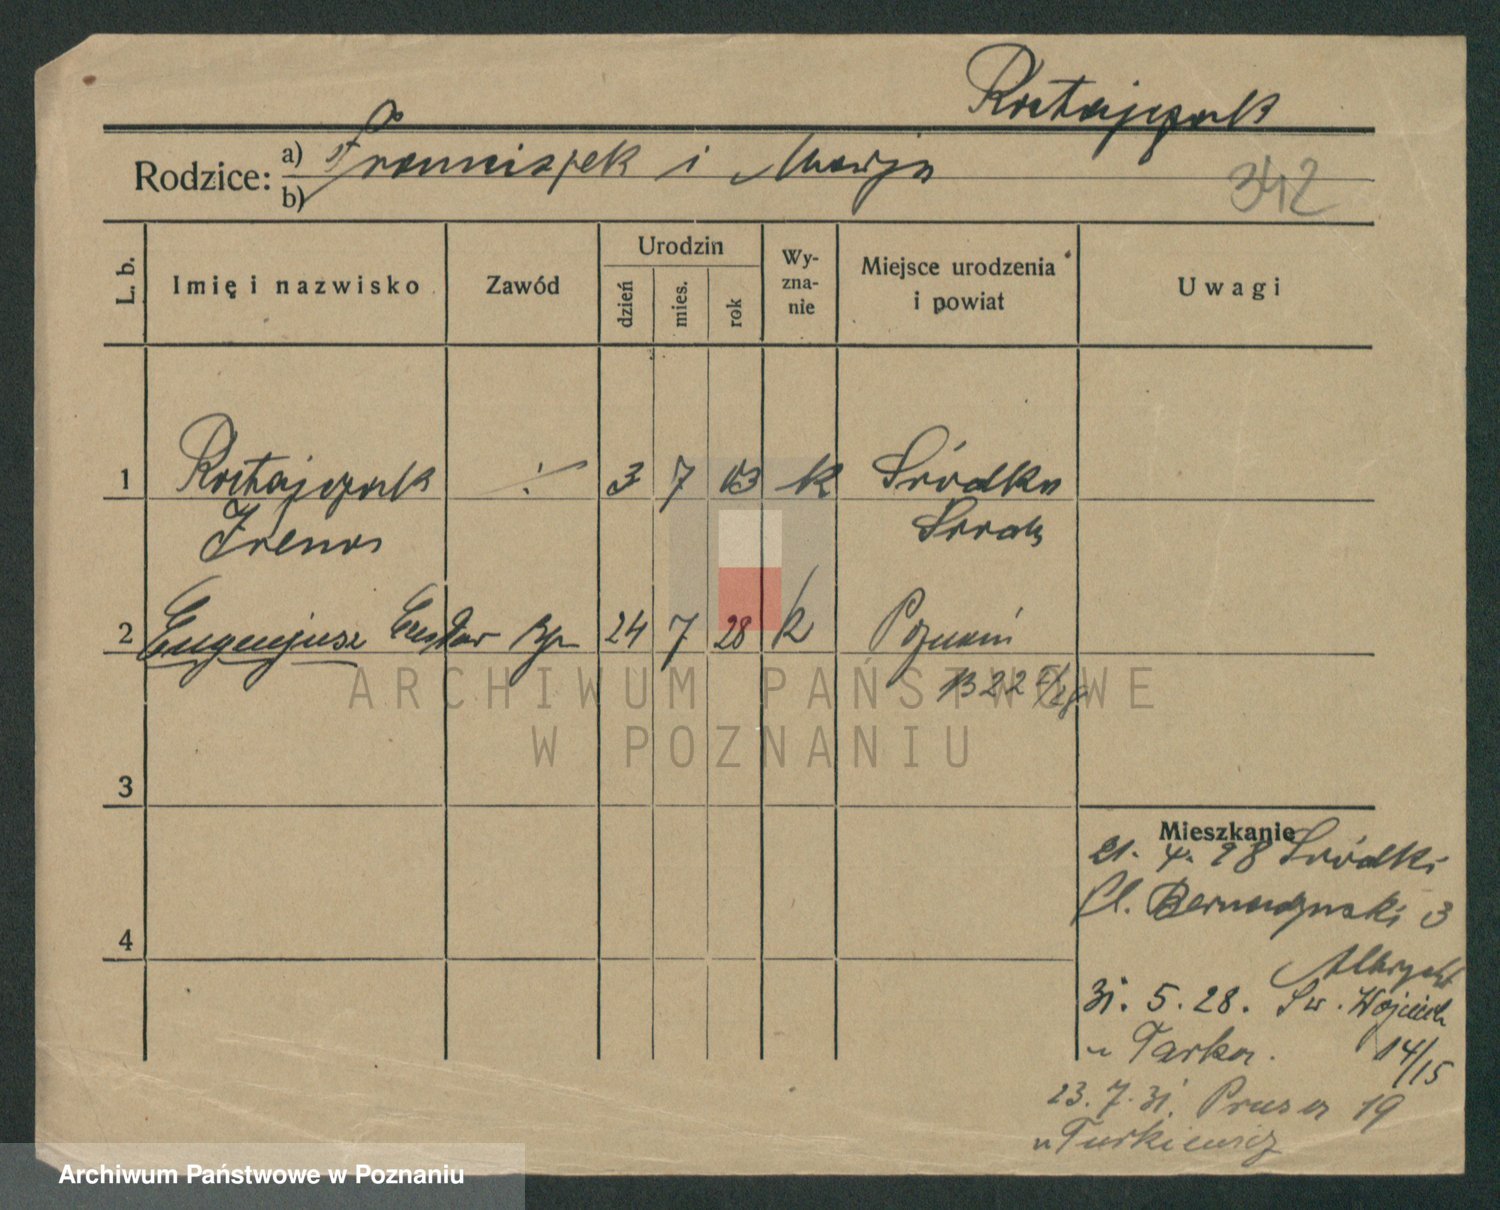 Ratajczak
Rodzice: a) Franciszek i Marja
b)
342
L. b.
Imię i nazwisko
Zawód
Urodzin
dzień
mies.
rok
Wy-
zna-
nie
Miejsce urodzenia
i powiat
Uwagi
1 Ratajczak ÷ 3 7 03 k Śródka
Irena
2 Eugenjusz Czesław 24 7 28 k Poznań
3
4
Mieszkanie
21. 4. 28 Śródki
Pl. Bernardynski 3
31. 5. 28. Św. Wojciech
u Tarka. 14/15
23. 7. 31. Prusa 19
u Turkiewicz
ARCHIWUM PAŃSTWOWE
W POZNANIU
Archiwum Państwowe w Poznaniu